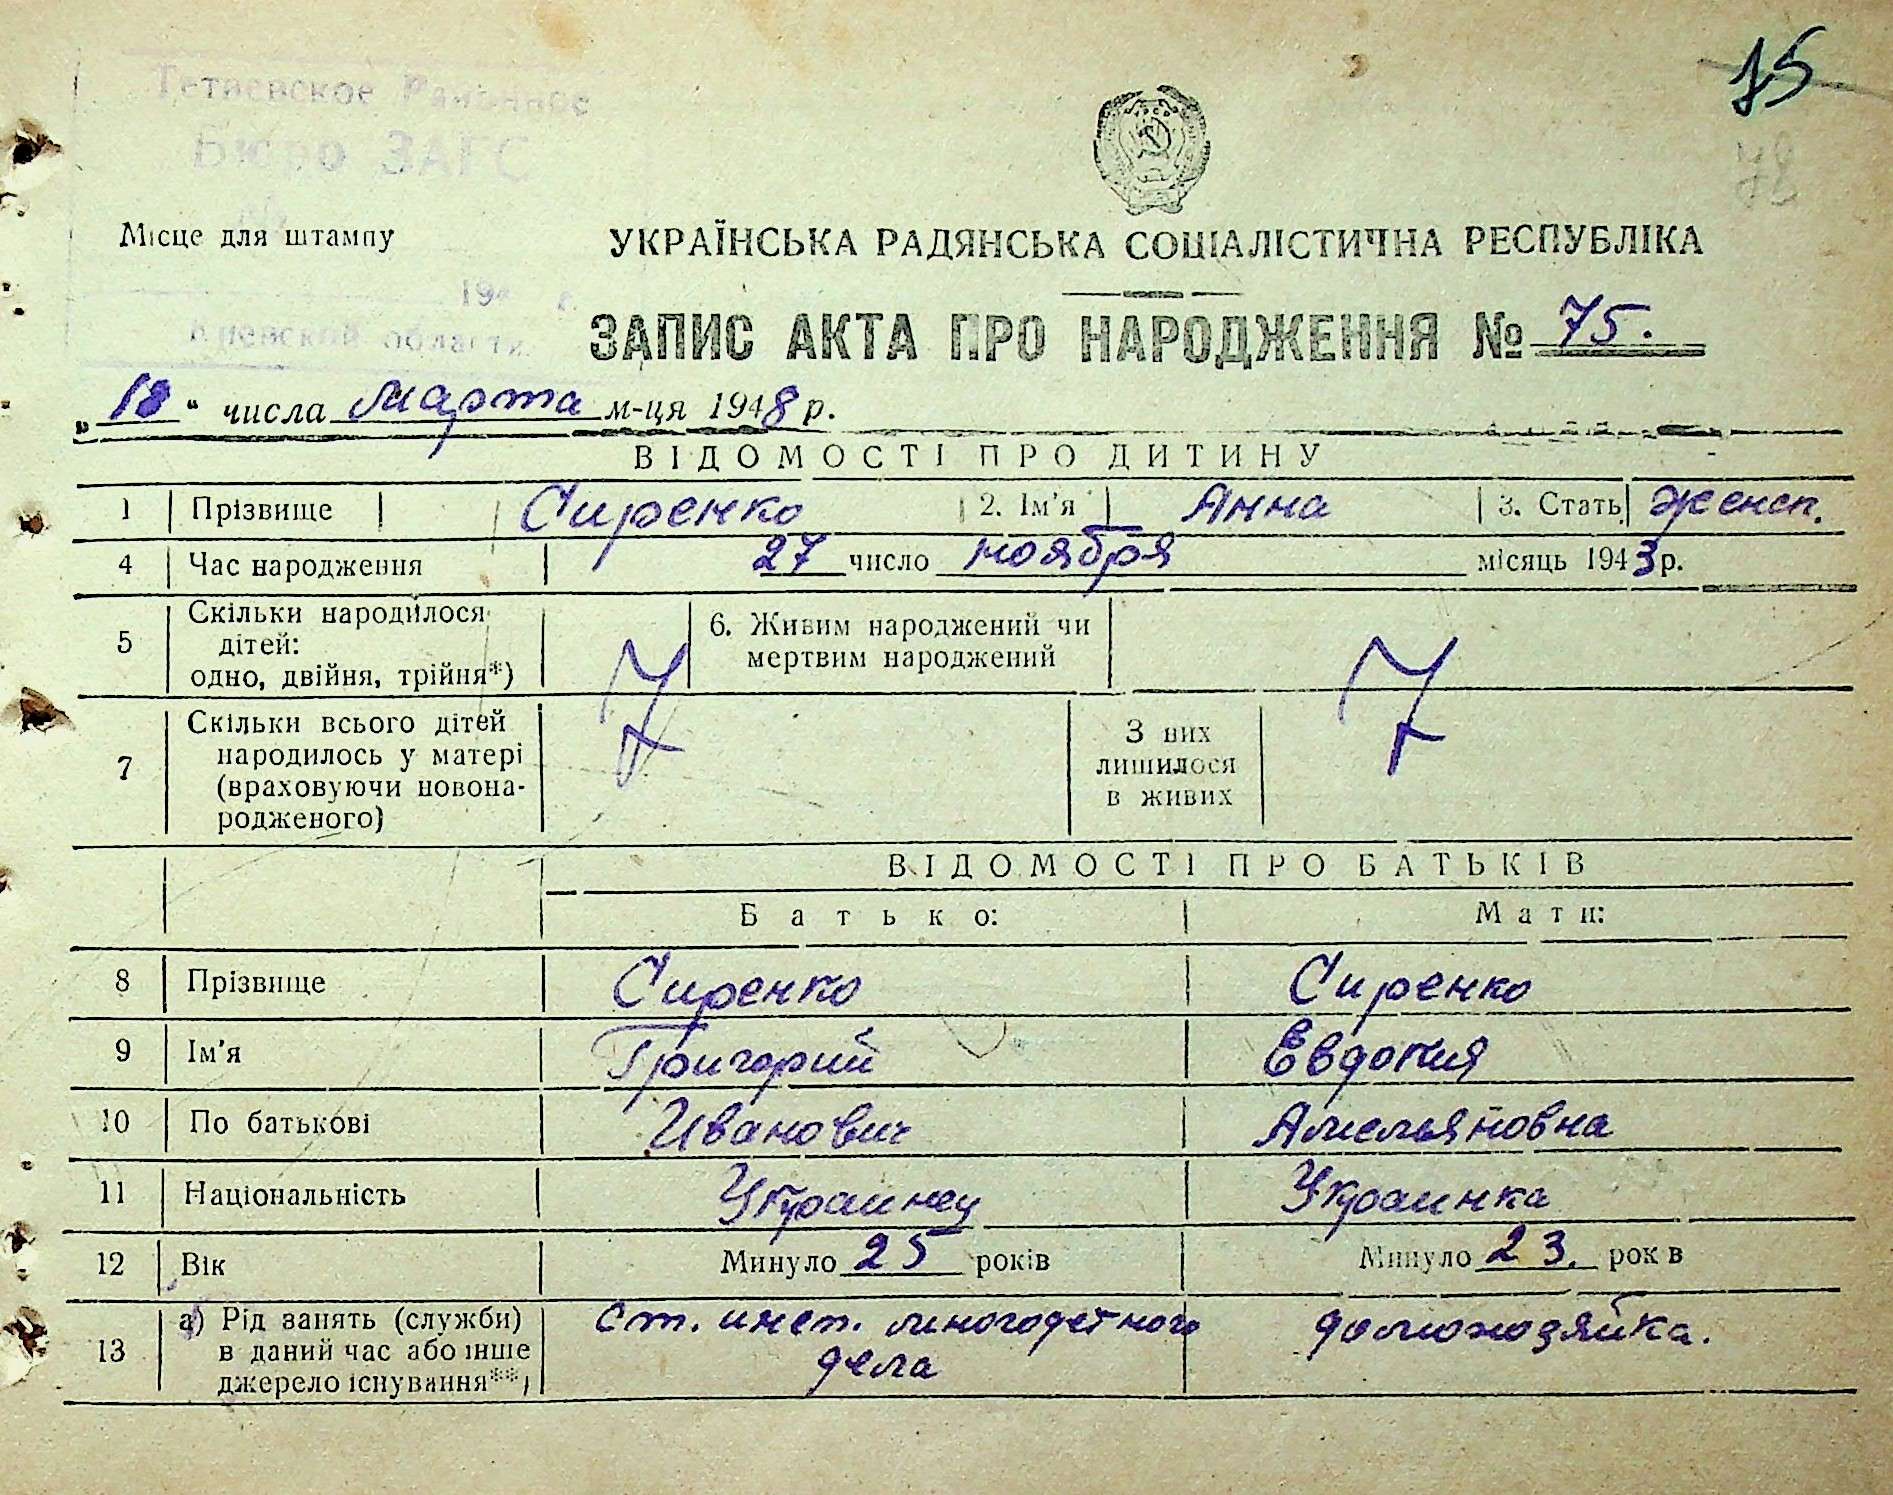 75
Тетиевское Районное
Бюро ЗАГС
Місце для штампу
194 г.
Киевской области
УКРАЇНСЬКА РАДЯНСЬКА СОЦІАЛІСТИЧНА РЕСПУБЛІКА
ЗАПИС АКТА ПРО НАРОДЖЕННЯ № 75.
„18“ числа марта м-ця 1948 р.
ВІДОМОСТІ ПРО ДИТИНУ
1 Прізвище Сиренко 2. Ім'я Анна 3. Стать женск.
4 Час народження 27 число ноября місяць 1943 р.
5 Скільки народилося дітей: одно, двійня, трійня*) 6. Живим народжений чи мертвим народжений
7 Скільки всього дітей народилось у матері (враховуючи новонародженого) З них лишилося в живих
ВІДОМОСТІ ПРО БАТЬКІВ
Батько: Мати:
8 Прізвище Сиренко Сиренко
9 Ім'я Григорий Евдокия
10 По батькові Иванович Амельяновна
11 Національність Украинец Украинка
12 Вік Минуло 25 років Минуло 23. рок в
13 а) Рід занять (служби) в даний час або інше джерело існування**) Ст. инсп. многодетного дела домохозяйка.